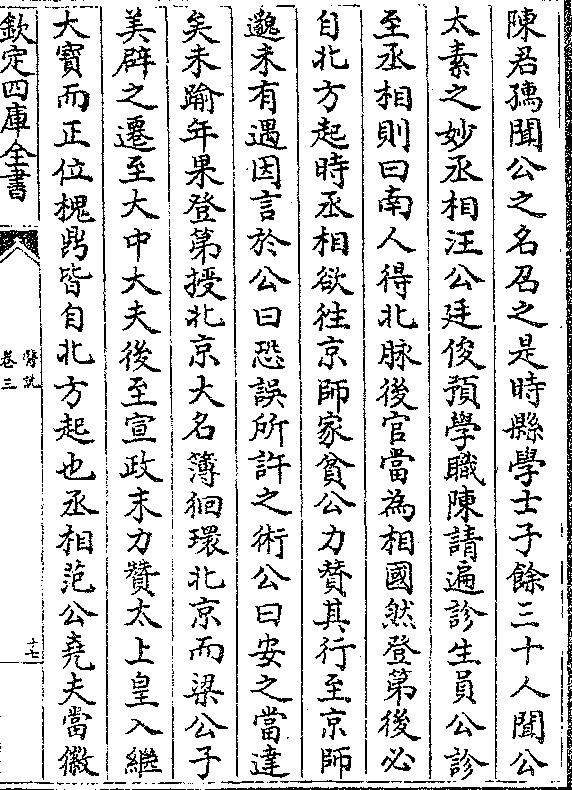 陳君孺聞公之名召之是時縣學士子餘三十人聞公
太素之妙丞相汪公廷俊預學職陳請遍診生員公診
至丞相則曰南人得北脉後官當為相國然登第後必
自北方起時丞相欲徃京師家貧公力賛其行至京師
邈未有遇因言於公曰恐誤所許之術公曰安之當達
矣未踰年果登第授北京大名簿徊環北京而梁公子
美辟之遷至大中大夫後至宣政末力贊太上皇入繼
大寳而正位槐鼎皆自北方起也丞相范公堯夫當徽
欽定四庫全書
醫說
卷三
十七